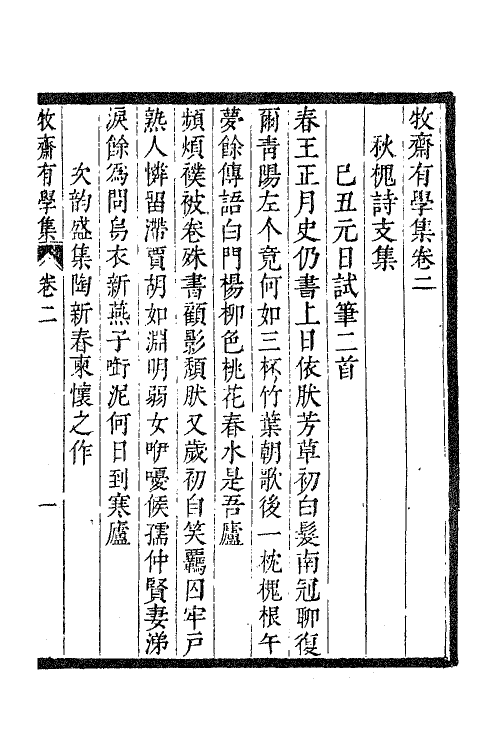 牧齋有學集卷二
秋槐詩支集
己丑元日試筆二首
春王正月史仍書上日依肰芳草初白髮南冠聊復
爾靑陽左个竟何如三杯竹葉朝歌後一枕槐根午
夢餘傳語白門楊柳色桃花春水是吾廬
頻煩襆被卷殊書顧影頹肰又歲初自笑羈囚牢戸
熟人憐留滯賈胡如淵明弱女咿嚘候孺仲賢妻涕
淚餘爲問舄衣新燕子銜泥何日到寒廬
次韵盛集陶新春柬懷之作
牧齋有學集 卷二 一